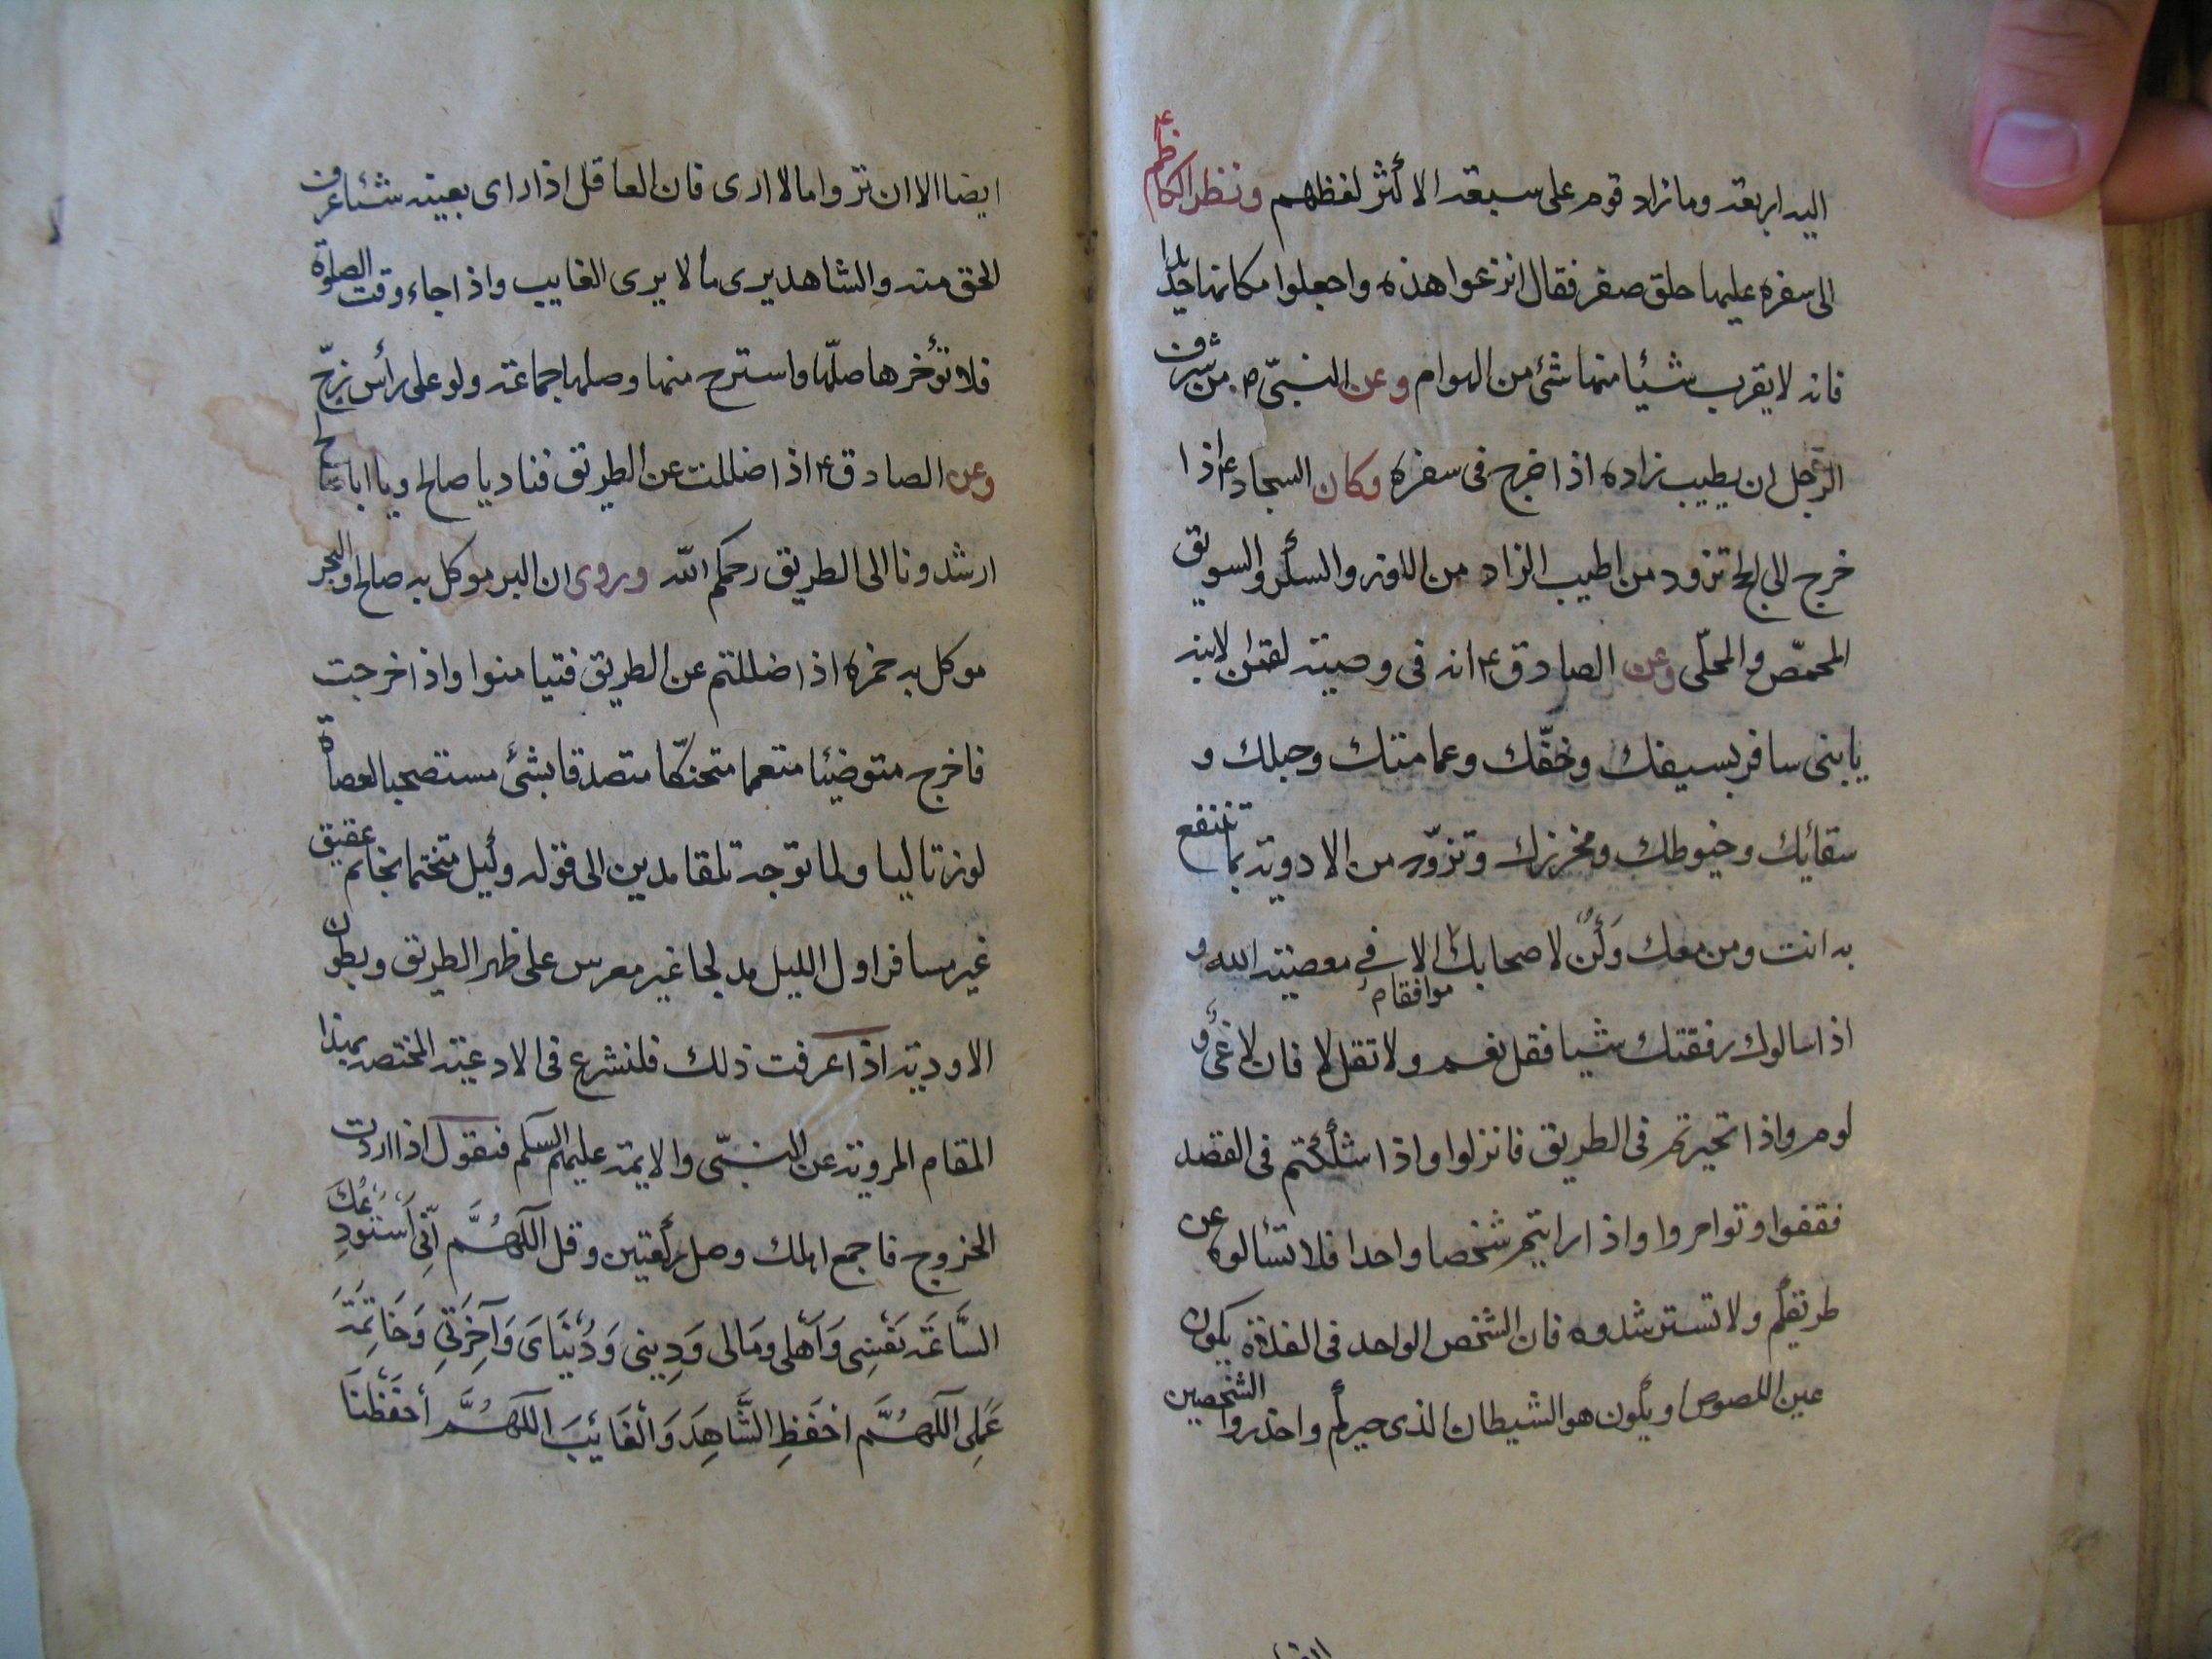 اليه اربعة وما زاد قوم على سبعة الا كثر لغظهم ونظر الكاظم ع
الى سفرة عليها حلق صفر فقال انزعوا هذه واجعلوا مكانها حديدا
فانه لا يقرب شيئا منها شئ من الهوام وعن النبىّ ص من شرف
الرجل ان يطيب زاده اذا خرج فى سفره وكان السجاد ع اذا
خرج الى الحج تزود من اطيب الزاد من اللوز والسكر والسويق
المحمّص والمحلّى وعن الصادق ع انه فى وصية لقمن لابنه
يا بنى سافر بسيفك وخفّك وعمامتك وحبلك و
سقائك وخيوطك ومخرزك وتزوّد من الادوية بما تنتفع
به انت ومن معك وَكُن لاصحابك موافقا الا فى معصية الله و
اذا سالوك رفقتك شيا فقل نعم ولا تقل لا فان لا عىّ و
لوم واذا تحيرتم فى الطريق فانزلوا واذا شككتم فى القصد
فقفوا وتوامروا واذا رايتم شخصا واحدا فلا تسألوه عن
طريقكم ولا تسترشدوه فان الشخص الواحد فى الفلاة يكون
عين اللصوص او يكون هو الشيطان الذى حيركم واحذروا الشخصين
ايضا الا ان تروا ما لا ارى فان العاقل اذا راى بعينه شئيا عرف
الحق منه والشاهد يرى ما لا يرى الغايب واذا جاء وقت الصلوة
فلا تؤخرها صلّها واسترح منها وصلها جماعة ولو على رأس زجّ
وعن الصادق ع اذا ضللت عن الطريق فناد يا صالح ويا ابا صالح
ارشدونا الى الطريق رحمكم الله وروى ان البر موكل به صالح والبحر
موكل به حمزه اذا ضللتم عن الطريق فتيامنوا واذا خرجت
فاخرج متوضيئا متعما متحنكّا متصدقا بشئ مستصحبا لعصاة
لوز تاليا ولما توجه تلقا مدين الى قوله وكيل متختما بخاتم عقيق
غير مسافر اول الليل مدلجا غير معرس على ظهر الطريق وبطون
الاودية اذا عرفت ذلك فلنشرع فى الادعية المختصه بهذا
المقام المروية عن النبىّ والايمة عليهم السلم فنقول اذا اردت
الخروج فاجمع اهلك وصل ركعتين وقل اَللّهُمَّ اِنِّى اَسْتَوْدِعُكَ
السَّاعَةَ نَفْسِى وَاَهْلى ومَالى وَدِينى وَدُنْيَاىَ وَآخِرَتِى وَخَاتِمَةَ
عَمَلِى اَللّهُمَّ احْفَظِ الشَّاهِدَ وَالْغَائِبَ اَللّهُمَّ اُحْفَظْنَا